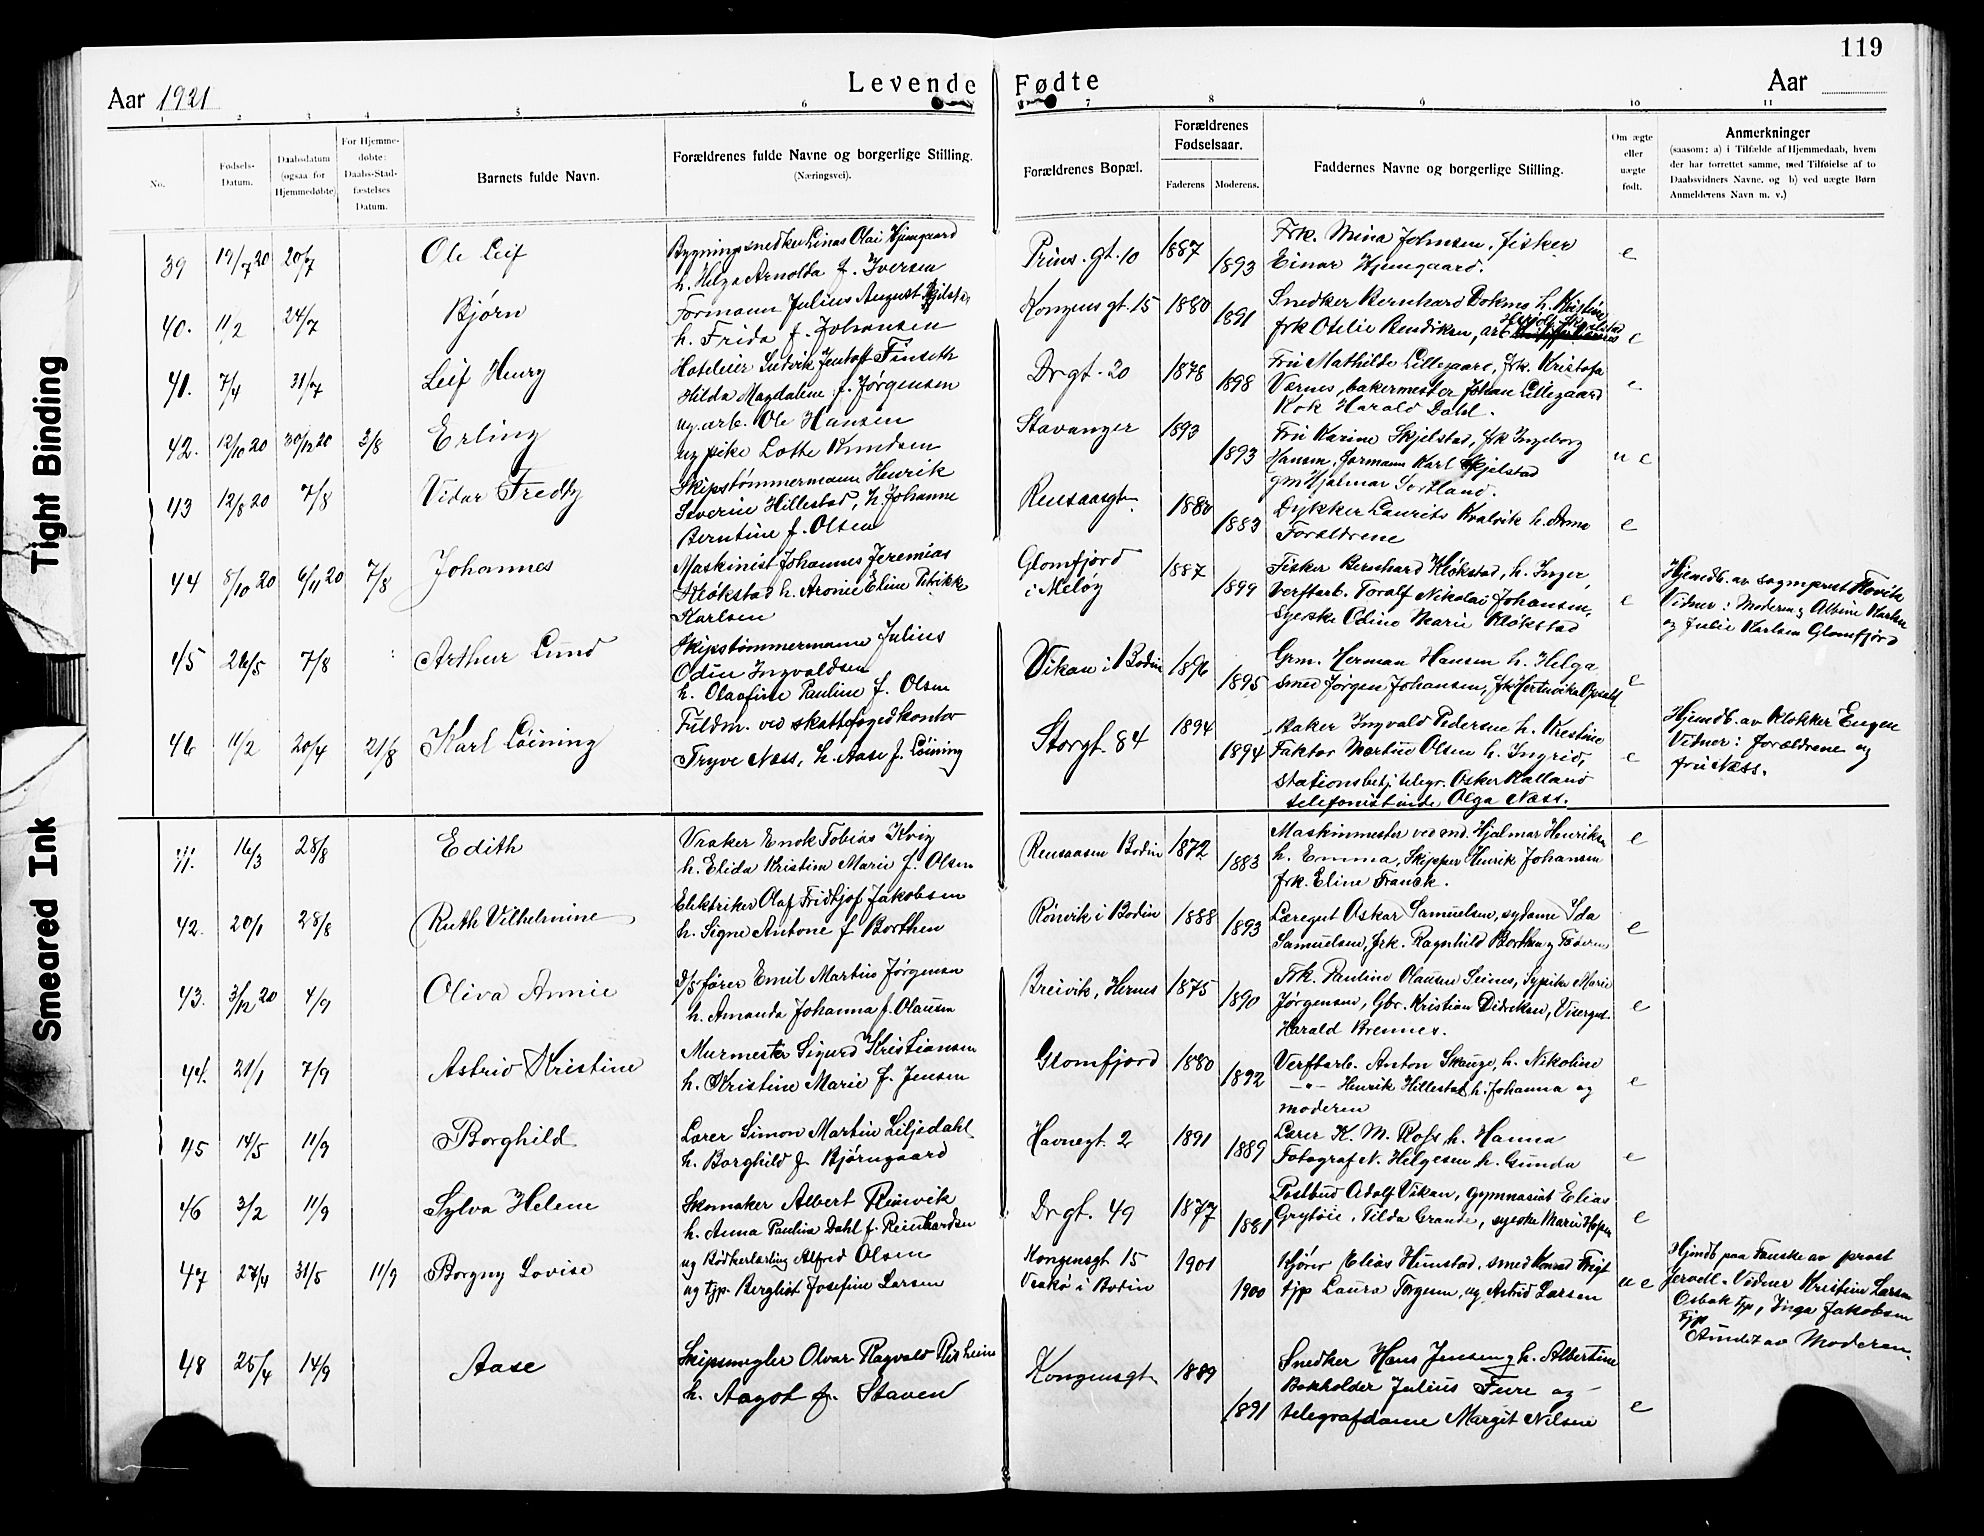 119
Levende Fødte
Aar 1921
Aar
1 2 3 4 5 6 7 8 9 10 11
No.
Fødsels-
Datum.
Daabsdatum
(ogsaa for
Hjemmedøbte)
For Hjemme-
døbte:
Daabs-Stad-
fæstelses
Datum.
Barnets fulde Navn.
Forældrenes fulde Navne og borgerlige Stilling.
(Næringsvei).
Forældrenes Bopæl.
Forældrenes
Fødselsaar.
Faderens.
Moderens.
Faddernes Navne og borgerlige Stilling.
Om ægte
eller
uægte
født.
Anmerkninger
(saasom: a) i Tilfælde af Hjemmedaab, hvem
der har forrettet samme, med Tilføielse af to
Daabsvidners Navne, og b) ved uægte Børn
Anmelderens Navn m. v.)
39 19/7 20 20/7 Ole Leif
Bygningssnedker Linas Olai Hjemgaard
h. Helga Arnolda f. Iversen
Prins. gt. 10 1887 1893
Frk. Mina Johnsen, fisker
Einar Hjemgaard.
e
40. 11/2 24/7 Bjørn
Formann Julius August
h. Frida f. Johansen
Kongensgt. 15 1880 1891
Snedker Bernhard Dokmo h. Kristine
frk Otelie Bendiksen, arb.
e
41. 7/4 31/7 Leif Henry
Hotelier Ludvik Jentoft Finseth
Hilda Magdalene f. Jørgensen
Dr gt. 20 1878 1898
Fru Mathilde Lillegaard, frk. Kristofa
Værnes, bakermester Johan Lillegaard
Kok Harald Dahl.
e
42. 12/10 20 30/12 20 3/8 Erling
ug. arb. Ole Hansen
ug pike Lotte Knudsen
Stavanger 1893 1893
Fru Karine Skjelstad, frk Ingeborg
Hansen, formann Karl Skjelstad
gm Hjalmar Sortland.
u e
43 12/8 20 7/8 Vidar Fredly
Skipstømmermann Henrik
Severin Hillestad, h. Johanne
Berntine f. Olsen
Rensaasgt. 1880 1883
Dykker Laurits Kvalvik h. Anna
Forældrene
e
44 8/10 20 6/11 20 7/8 Johannes
Maskinist Johannes Jeremias
Kløkstad h. Aronie Eline Petrikke
Karlsen
Glomfjord
i Meløy
1887 1899
Fisker Bernhard Kløkstad, h. Inger,
Verftarb. Toralf Nikolai Johansen,
syerske Odine Marie Kløkstad
e
Hjemdb. av sogneprest Hovik
Vidner: Moderen og Albine Karlsen
og Julie Karlsen Glomfjord
45 26/5 7/8 Arthur Lund
Skipstømmermann Julius
Odin Ingvaldsen
h. Olaofine Pauline f. Olsen
Vikan i Bodin 1896 1895
Grm. Herman Hansen h. Helga
Smed Jørgen Johansen, frk
e
46 11/2 20/4 21/8 Karl Löining
Fuldm. ved skattefogedkontor
Tryve Næss, h. Aase f. Löining
Storgt. 84 1894 1894
Baker Ingvald Pedersen h. Kristine
Faktor Martin Olsen h. Ingrid,
Stationsbetj. telegr. Osker Kalland
telefonistinde Olga Næss.
e
Hjemdb. av Klokker Engen
Vidner: forældrene og
fru Næss.
41. 16/3 28/8 Edith
Vraker Enok Tobias Kvig
h. Elida Kristine Marie f. Olsen
Rensaasen Bodin 1872 1883
Maskinmester ved md. Hjalmar Henriksen
h. Emma, Skipper Henrik Johansen
frk. Eline Franck.
e
42. 20/1 28/8 Ruth Vilhelmine
Elektriker Olaf Fridtjof Jakobsen
h. Signe Antone f Borthen
Rönvik i Bodin 1888 1893
Læregut Oskar Samuelsen, sydame Ida
Samuelsen, frk. Ragnhild Borthen og Faderen
e
43. 3/12 20 4/9 Oliva Annie
D/S fører Emil Martin Jørgensen
h. Amanda Johanna f. Olausen
Breivik, Hernes 1875 1890
Frk. Pauline Olausen Seines, Sypike Marie
Jørgensen, Gbr. Kristian Didriksen, Visergut
Harald Brennes.
e
44. 21/1 7/9 Astrid Kristine
Murmester Sigurd Kristiansen
h. Kristine Marie f. Jensen
Glomfjord 1880 1892
Verftarb. Anton Skauge, h. Nikoline
—"— Henrik Hillestad h. Johanna og
moderen
e
45 14/5 11/9 Borghild
Lærer Simon Martin Liljedahl
h. Borghild f Bjørngaard
Havnegt. 2 1891 1889
Lærer K. M. Ross h. Hanna
Fotograf N. Helgesen h. Gunda
e
46 3/2 11/9 Sylva Helene
Skomaker Albert Reinvik
h. Anna Paulina Dahl f. Reinhardsen
Dr gt. 49 1877 1881
Postbud Adolf Vikan, Gymnasiast Elias
Grytöie, Tilda Grande, syerske Marie Hopen
e
47 27/4 31/5 11/9 Borgny Lovise
ug Bödkerlærling Alfred Olsen
ug tjp. Bergliot Josefine Larsen
Kongensgt 15
i Bodin
1901 1900
Kjører Elias Hunstad, smed Konrad
tjp Laura Torgesen, ug. Astrid Larsen
u e
Hjemdb paa Fauske av prest
Jervell. Vidner Kristine Larsen
Osbak tjp, Inga Jakobsen
tjp
Anmeldt av Moderen.
48 25/4 14/9 Aase
Skipsmegler Olvar Ragvald
h. Aagot f. Staven
Kongensgt 1889 1891
Snedker Hans Jensen og h. Albertine
Bokholder Julius Fure og
telegrafdame Margit Nilsen
e
Tight Binding
Smeared Ink